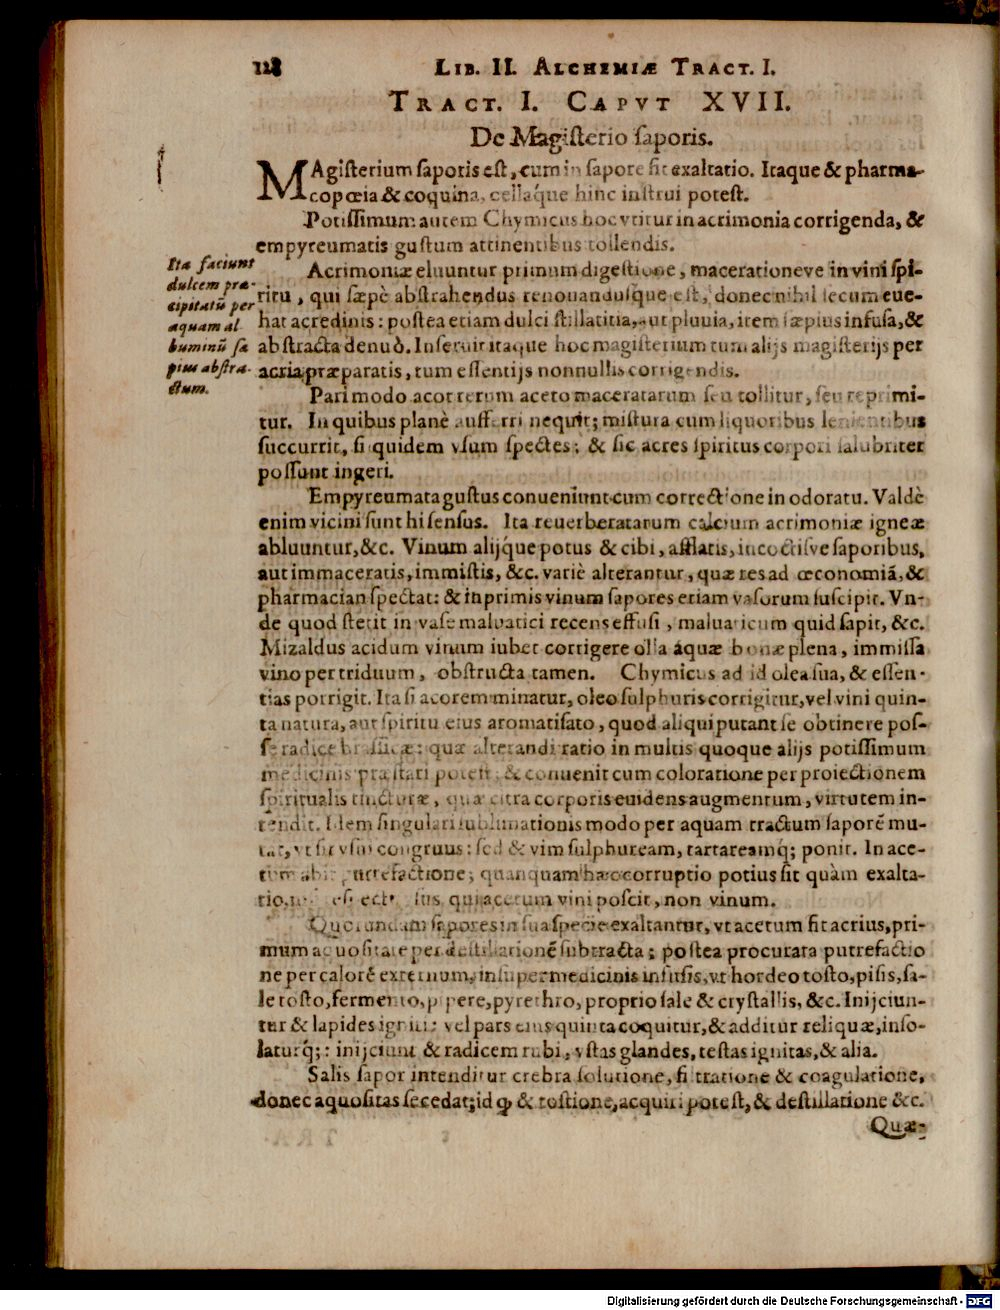 128 LIB. II. ALCHEMIÆ TRACT. I.
TRACT. I. CAPVT XVII.
De Magiſterio ſaporis.
MAgiſterium ſaporis eſt, cum in ſapore fit exaltatio. Itaque & pharma-
copœia & coquina, cellaq́ue hinc inſtrui poteſt.
Potiſſimum autem Chymicus hoc vtitur in acrimonia corrigenda, &
empyreumatis guſtum attinentibus tollendis.
Ita faciunt
dulcem præ-
cipitatũ per
aquam al
buminũ ſæ
pius abſtra-
ctum.
Acrimoniæ eluuntur primum digeſtione, macerationeve in vini ſpi-
ritu, qui ſæpè abſtrahendus renouanduſque eſt, donec nihil ſecum eue-
hat acredinis: poſtea etiam dulci ſtillatitia, aut pluuia, item ſæpius infuſa, &
abſtracta denuò. Inſeruit itaque hoc magiſterium tum alijs magiſterijs per
acria præparatis, tum eſſentijs nonnullis corrigendis.
Pari modo acor rerum aceto maceratarum ſeu tollitur, ſeu reprimi-
tur. In quibus planè aufferri nequit; miſtura cum liquoribus lenientibus
ſuccurrit, ſi quidem vſum ſpectes; & ſic acres ſpiritus corpori ſalubriter
poſſunt ingeri.
Empyreumata guſtus conueniunt cum correctione in odoratu. Valdè
enim vicini ſunt hi ſenſus. Ita reuerberatarum calcium acrimoniæ igneæ
abluuntur, &c. Vinum alijq́ue potus & cibi, afflatis, incoctiſve ſaporibus,
aut immaceratis, immiſtis, &c. variè alterantur, quæ res ad œconomiã, &
pharmacian ſpectat: & inprimis vinum ſapores etiam vaſorum ſuſcipit. Vn-
de quod ſtetit in vaſe maluatici recens effuſi, maluaticum quid ſapit, &c.
Mizaldus acidum vinum iubet corrigere olla aquæ bonæ plena, immiſſa
vino per triduum, obſtructa tamen. Chymicus ad id olea ſua, & eſſen-
tias porrigit. Ita ſi acorem minatur, oleo ſulphuris corrigitur, vel vini quin-
ta natura, aut ſpiritu eius aromatiſato, quod aliqui putant ſe obtinere poſ-
ſe radice braſſicæ: quæ alterandi ratio in multis quoque alijs potiſſimum
medicinis præſtari poteſt, & conuenit cum coloratione per proiectionem
ſpiritualis tincturæ, quæ citra corporis euidens augmentum, virtutem in-
tendit. Idem ſingulari ſublimationis modo per aquam tractum ſaporẽ mu-
tat, vt ſit vſui congruus: ſed & vim ſulphuream, tartareamq́; ponit. In ace-
tum abit putrefactione; quanquam hæc corruptio potius ſit quàm exalta-
tio, qui acetum vini poſcit, non vinum.
Quorundam ſapores in ſua ſpecie exaltantur, vt acetum fit acrius, pri-
mum aquoſitate per deſtillationẽ ſubtracta; poſtea procurata putrefactio
ne per calorẽ externum, inſuper medicinis infuſis, vt hordeo toſto, piſis, ſa-
le toſto, fermento, pipere, pyrethro, proprio ſale & cryſtallis, &c. Inijciun-
tur & lapides igniti: vel pars eius quinta coquitur, & additur reliquæ, inſo-
laturq́;: inijciunt & radicem rubi, vſtas glandes, teſtas ignitas, & alia.
Salis ſapor intenditur crebra ſolutione, filtratione & coagulatione,
donec aquoſitas ſecedat; id q̃ & toſtione, acquiri poteſt, & deſtillatione &c.
Quæ-
Digitalisierung gefördert durch die Deutsche Forschungsgemeinschaft - DFG